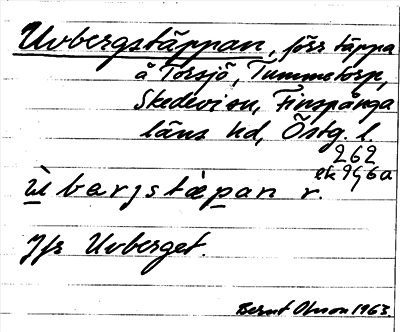 Uvbergstäppan, förr täppa
å Torsjö, Tummetorp,
Skedevi sn, Finspånga
läns hd, Östg. l.
262
ek 9 9 6 a
ùbærjstæ̀pan r.
Jfr Uvberget.
Bernt Olsson 1963